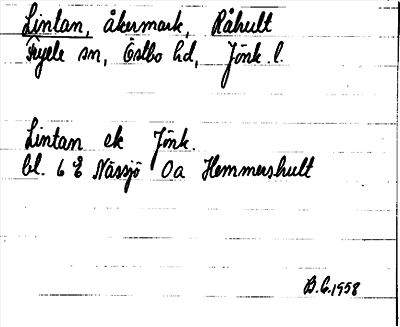 Lintan, åkermark, Råhult
Fryele sn, Östbo hd, Jönk. l.
Lintan ek Jönk.
bl. 6 E Nässjö 0a Hemmershult
B.G. 1958